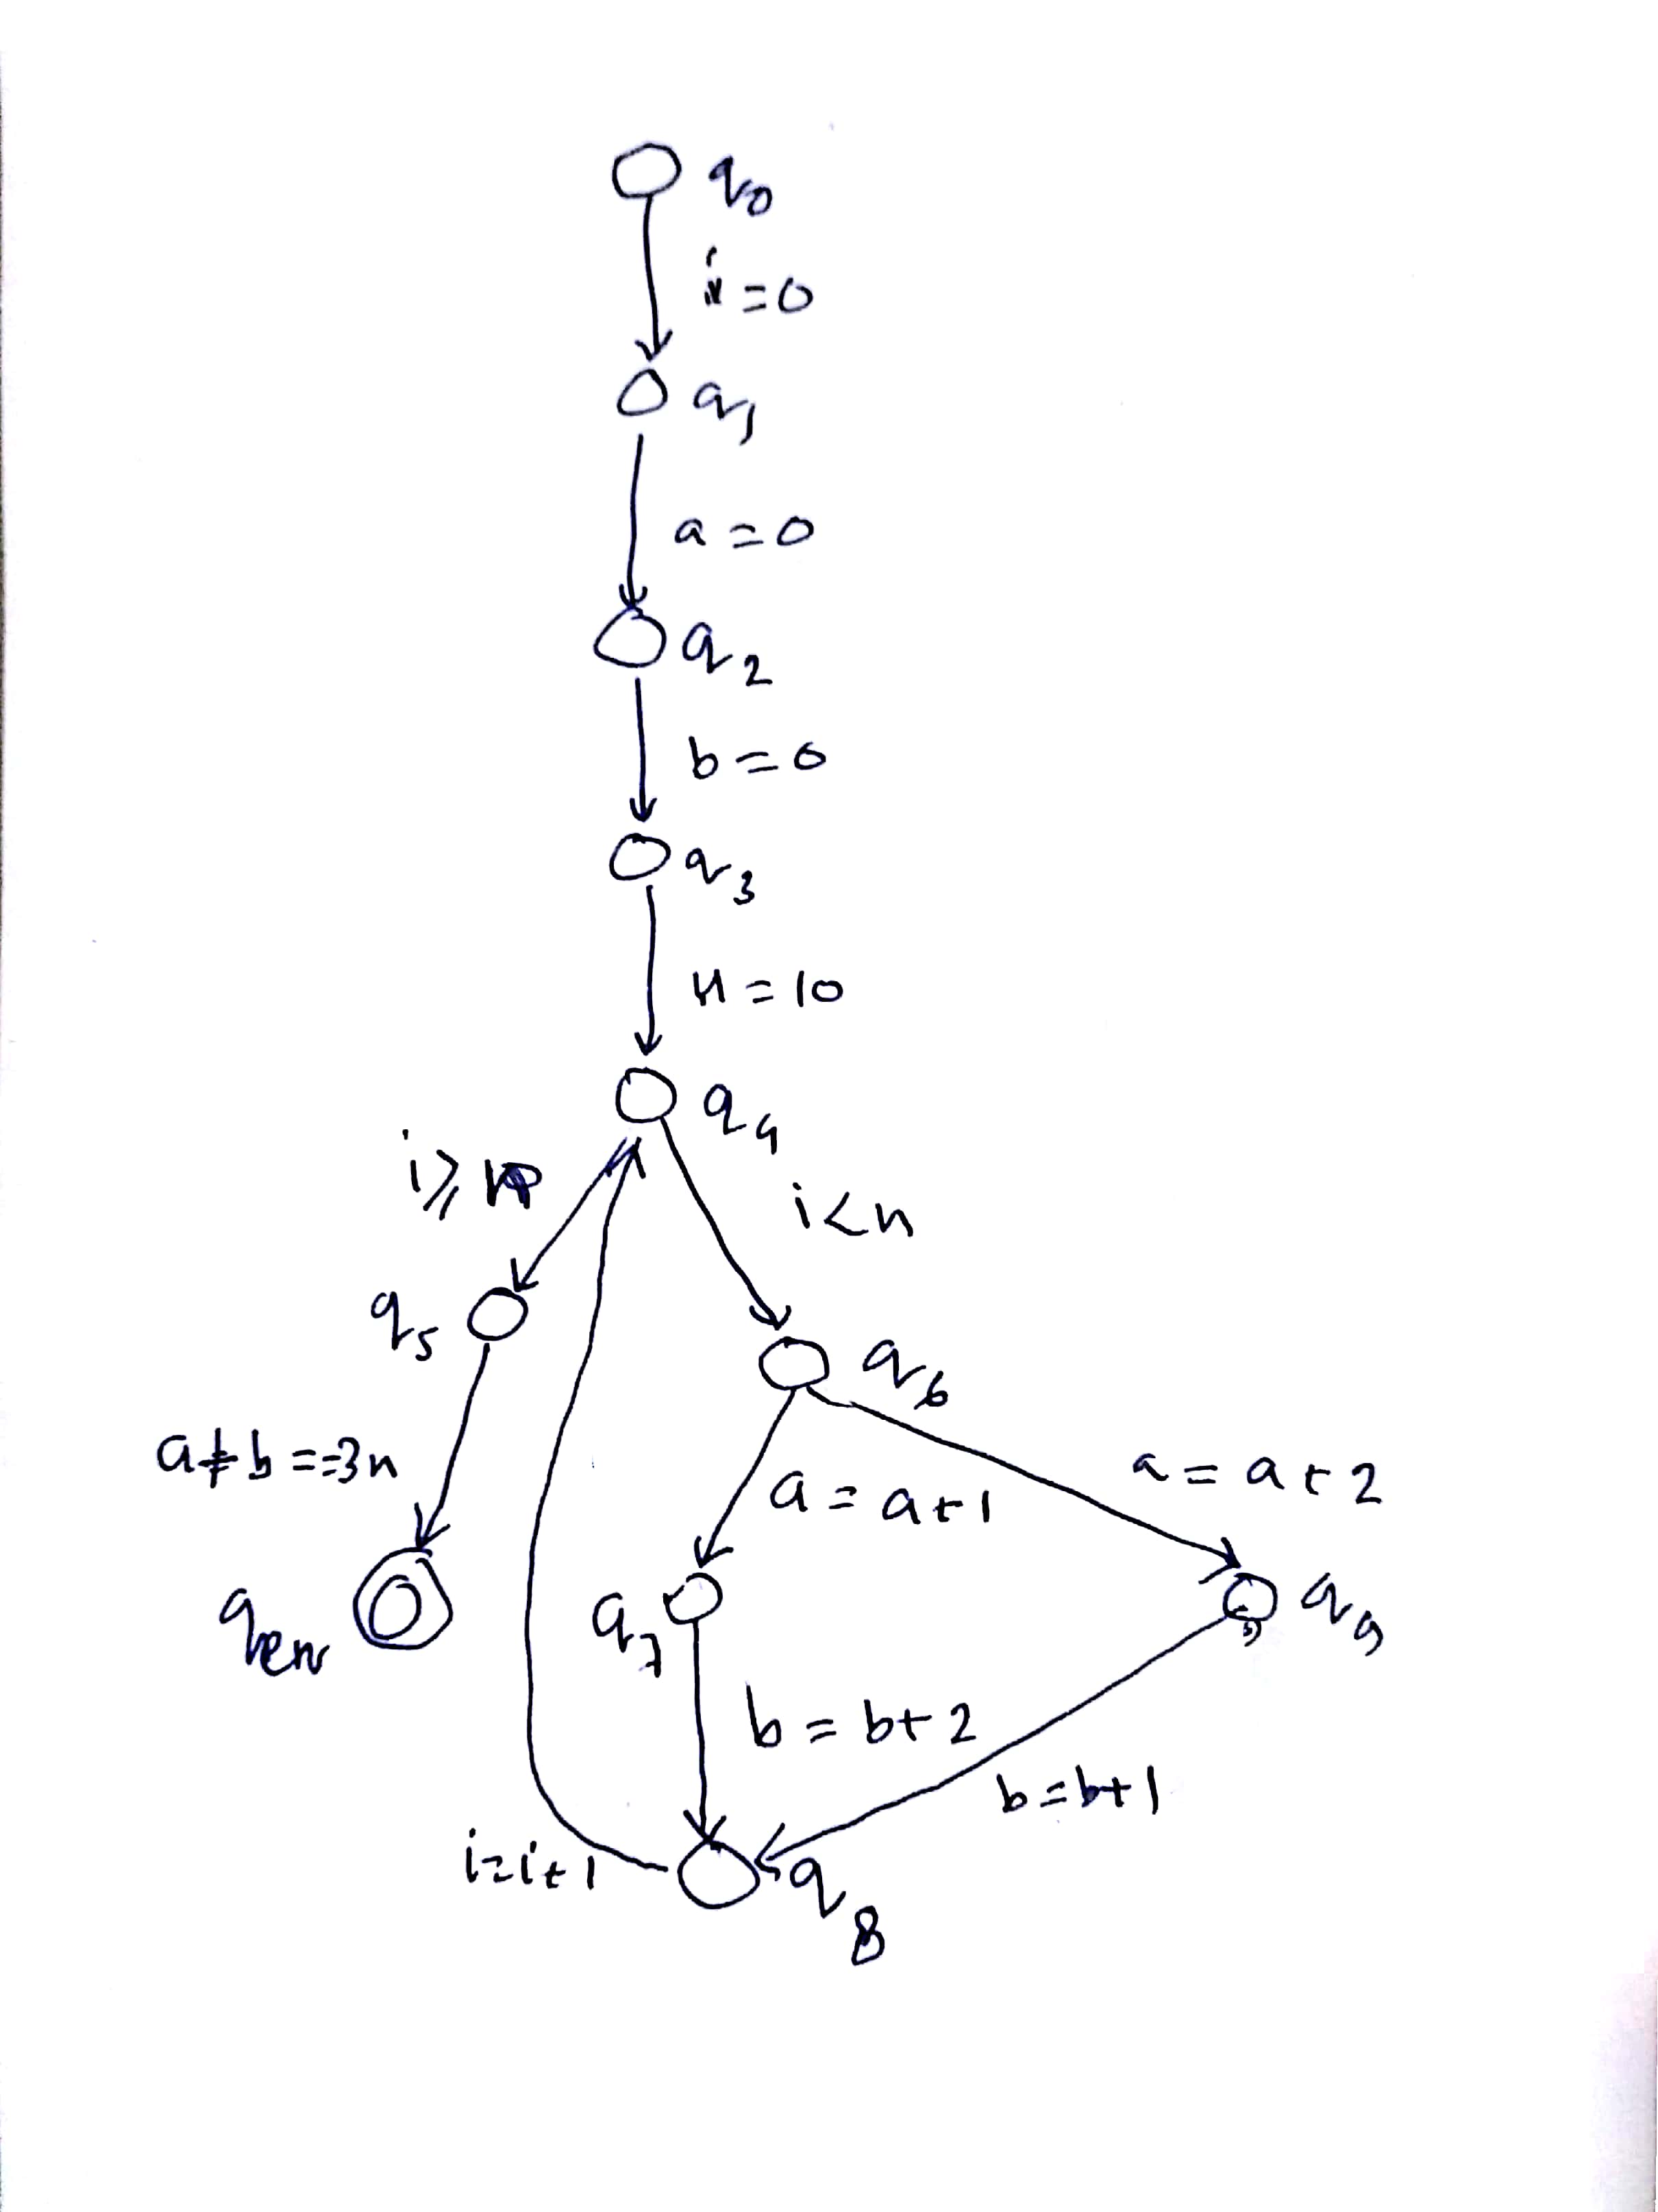 q0
i=0
q1
a=0
q2
b=0
q3
n=10
q4
i≥n
i<n
q5
q6
a≠b==3n
a=a+2
a=a+1
qerr
q7
q9
b=b+2
b=b+1
i=i+1
q8